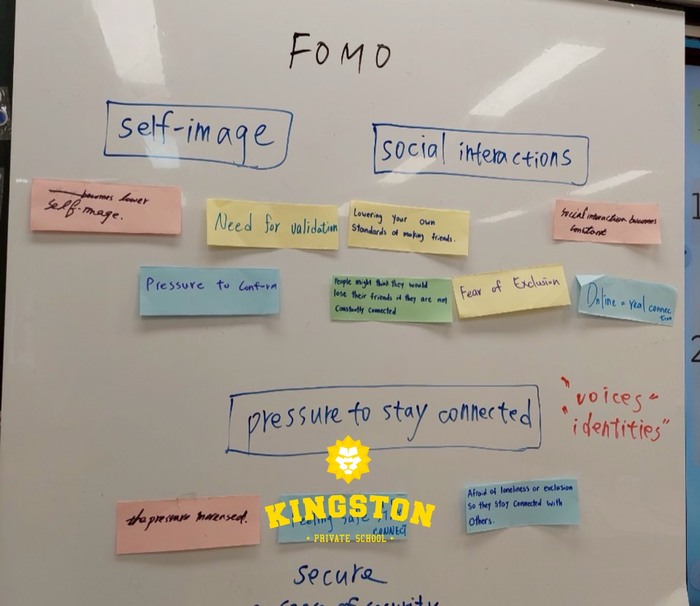 FOMO
self-image
social interactions
becomes lower
self-image.
Need for validation
Lowering your own
Standards of making friends.
Social interaction becomes
constant
Pressure to Conform
People might think they would
lose their friends if they are not
Constantly Connected
Fear of Exclusion
Online = real connec
tion
pressure to stay connected
"voices"
"identities"
the pressure increased.
KINGSTON
• PRIVATE SCHOOL •
Feeling safe
CONNECT
Afraid of loneliness or exclusion
So they stay Connected with
Others.
secure
security
1
2